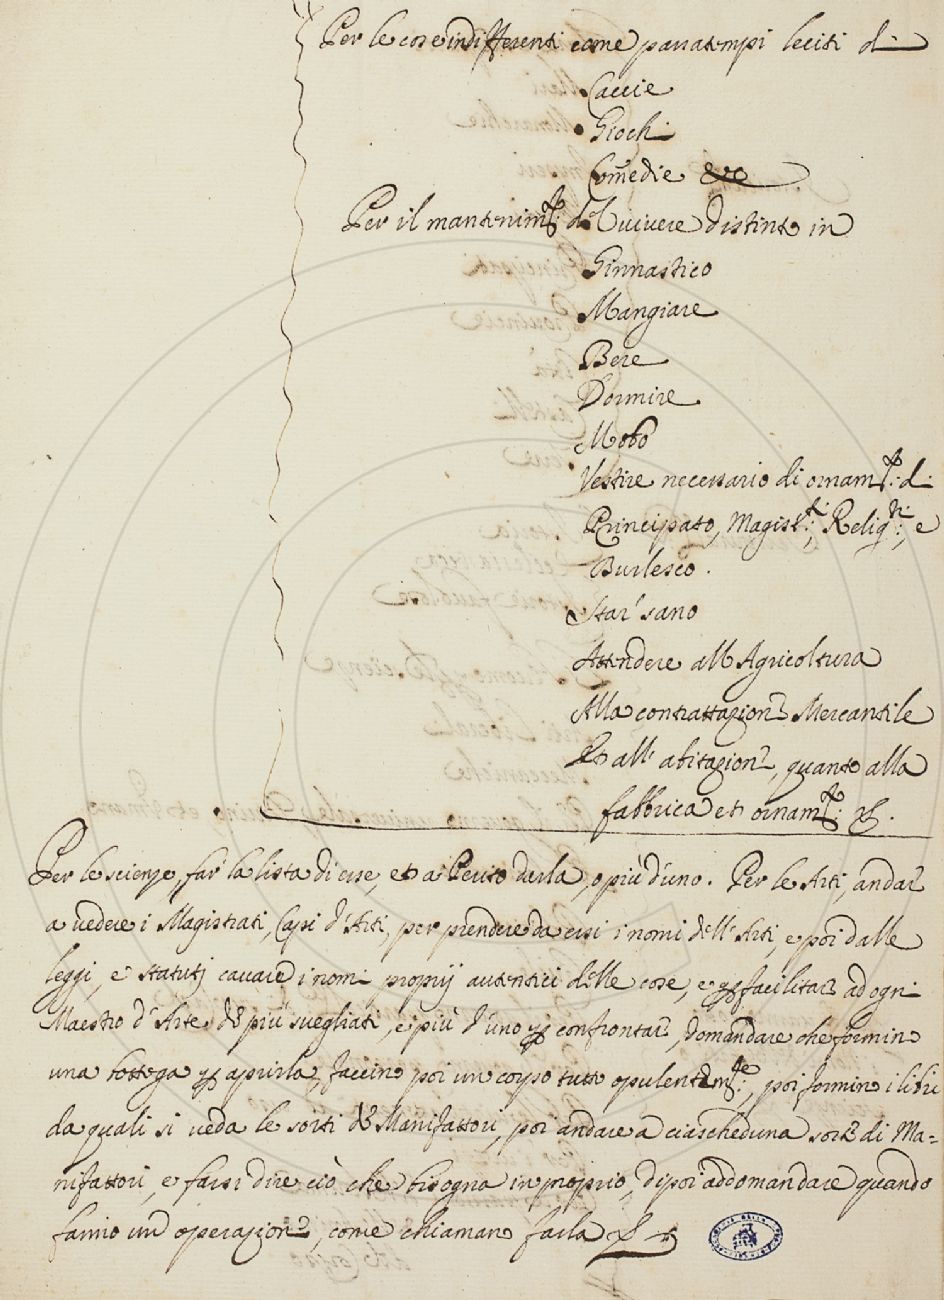 Per le cose indifferenti come passatempi leciti di
Caccie
Giochi
Com̃edie &c
Per il mantenim.to del vivere distinto in
Ginnastico
Mangiare
Bere
Dormire
Moto
Vestire necessario di ornam.to di
Principato, Magist.ti, Relig.ni, e
Burlesco.
Star' sano
Attendere all'Agricoltura
Alla contrattazion' Mercantile
Et all' abitazion', quanto alla
fabbrica et ornam.to &.
Per le scienze, far la lista di esse, et a Perito darla, o più d'uno. Per le Arti, andar
a vedere i Magistrati, Capi d'Arti, per prendere da essi i nomi dell'Arti, e poi dalle
leggi, e statutj cavare i nomi proprij autentici delle cose, e p facilitar ad ogni
Maestro d'Arte de più svegliati, e più d'uno p confrontar, domandare che formino
una bottega p aprirla, faccino poi un corpo tutto opulentem.te, poi formino i libri
da quali si veda le sorti de Manifattori, poi andare a ciascheduna sorte di Ma=
nifattori, e farsi dire ciò che bisogna in proprio, dipoi addomandare quando
fanno un operazion', come chiaman farla